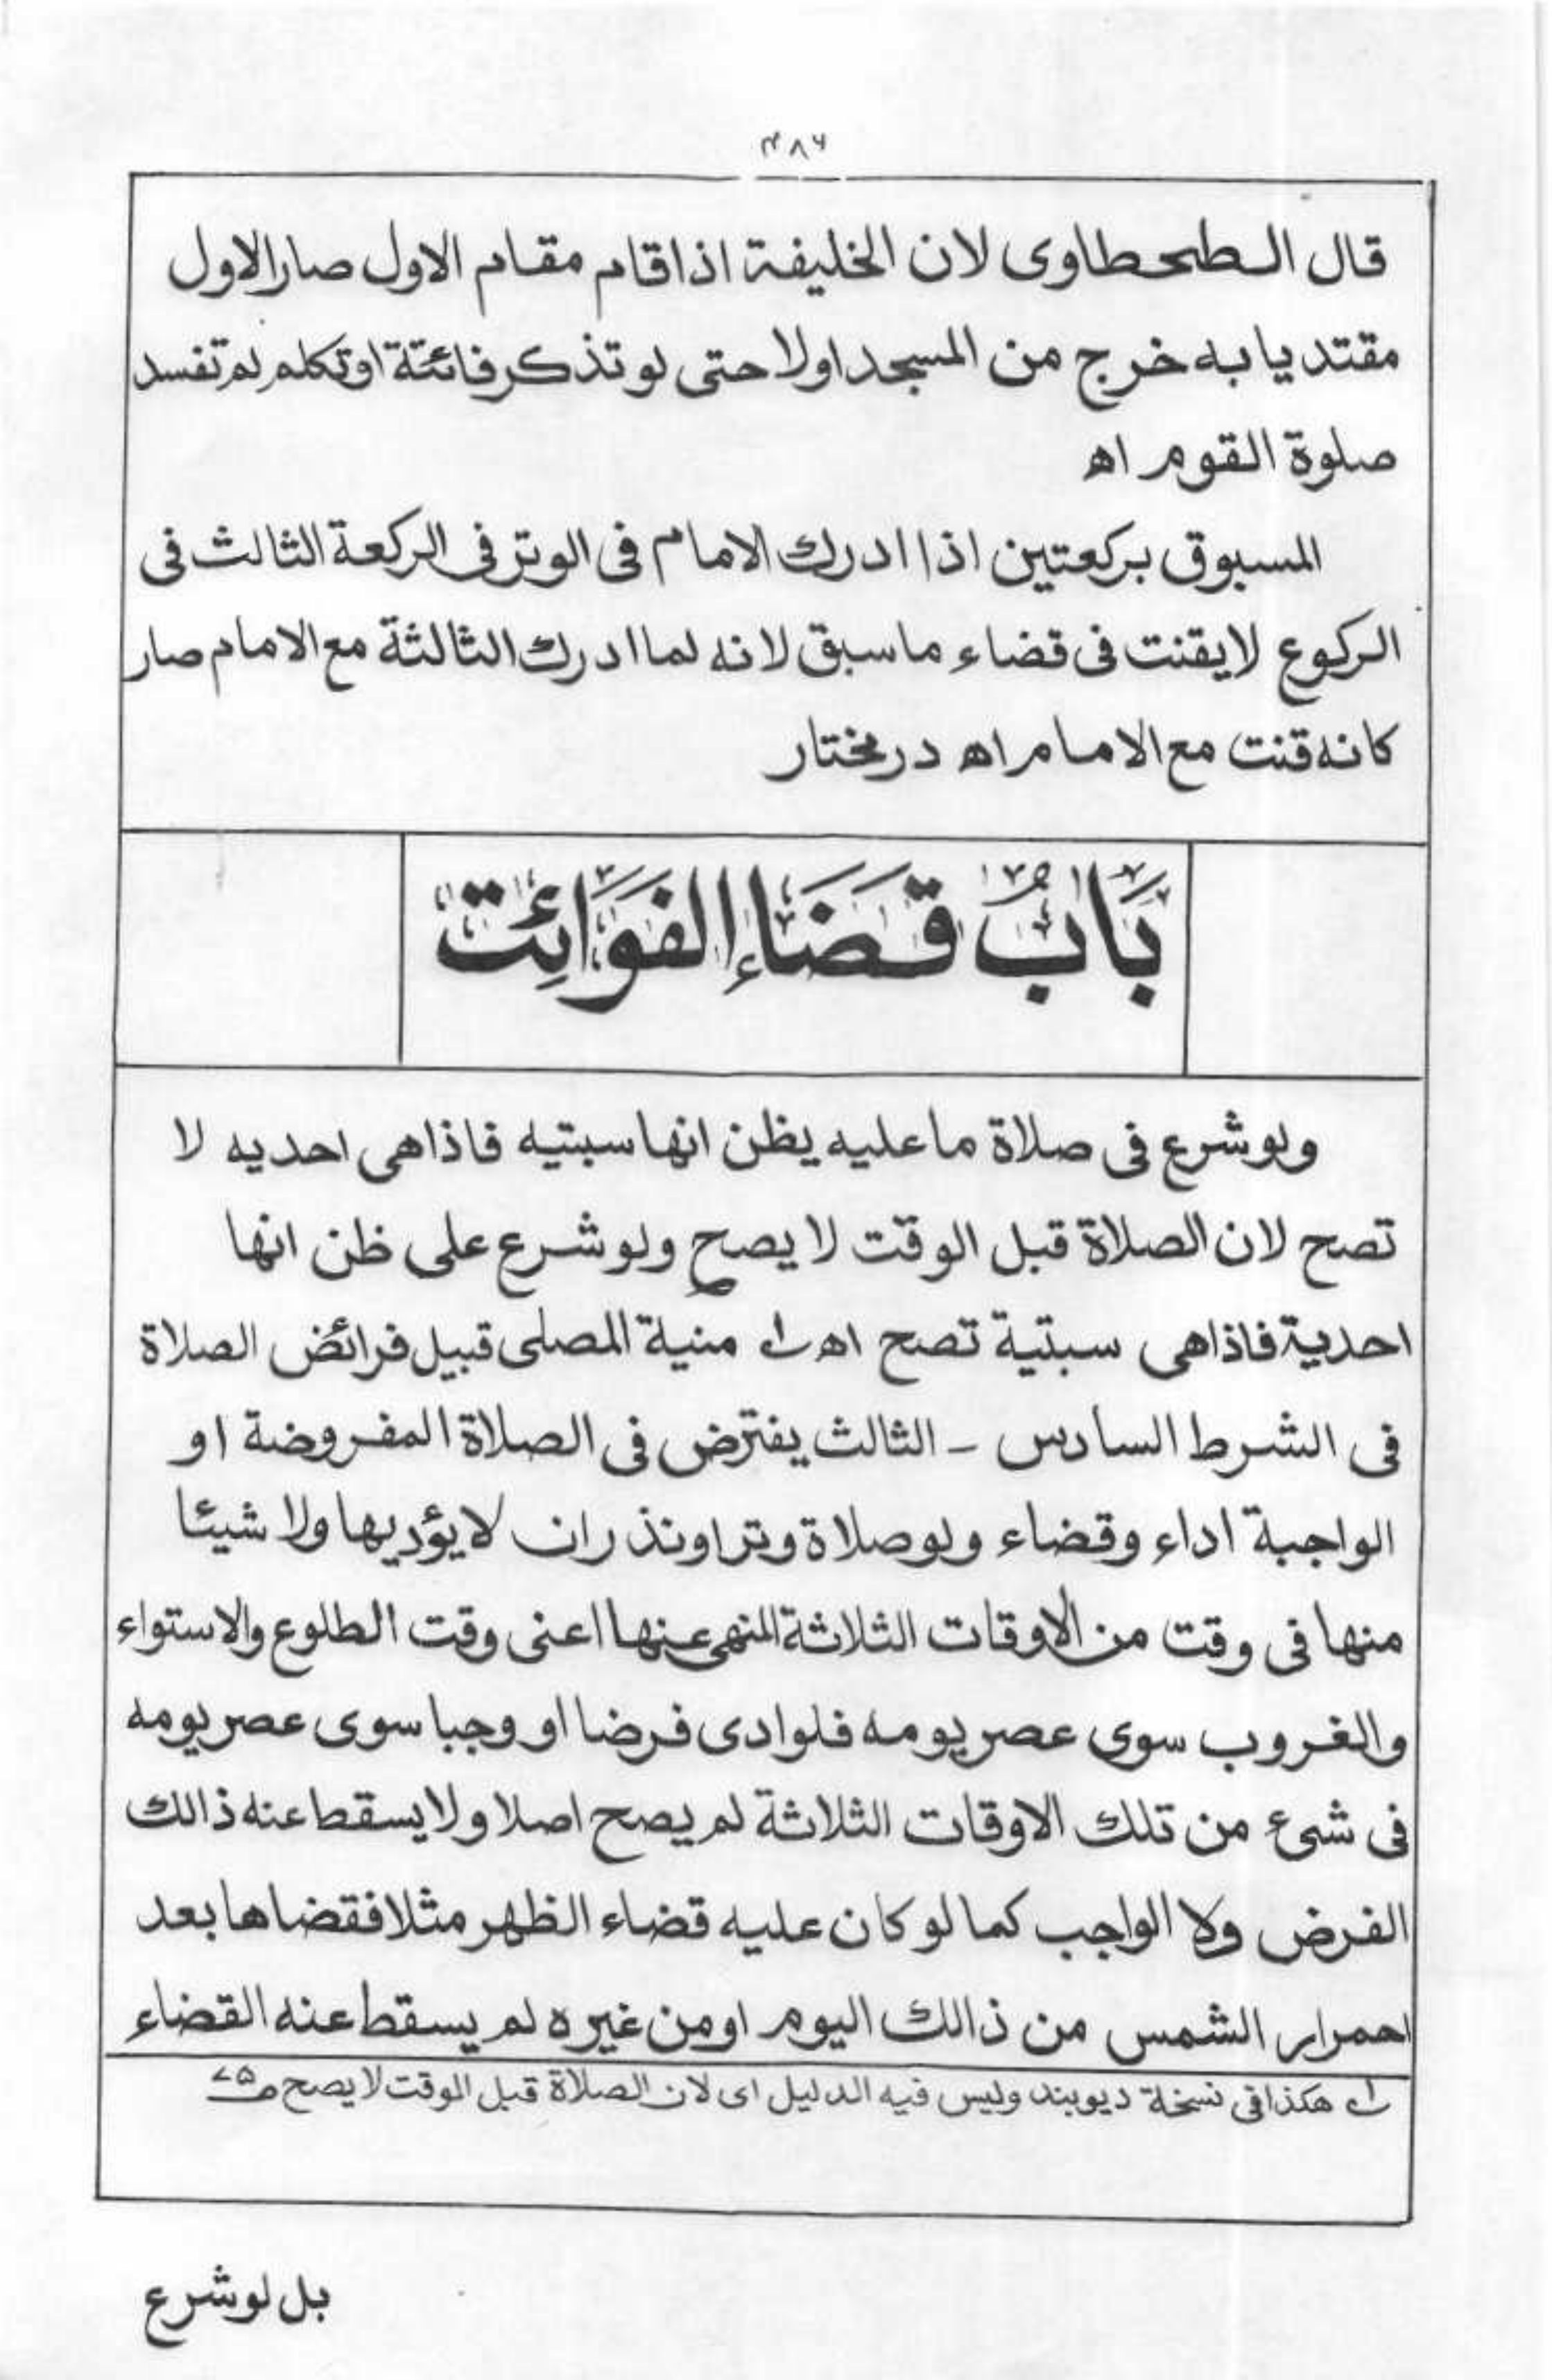 ۴۸۶
قال الطحطاوی لان الخلیفۃ اذا قام مقام الاول صار الاول
مقتدیا بہ خرج من المسجد اولا حتی لو تذکر فائتۃ او تکلم لم تفسد
صلوۃ القوم اھ
المسبوق برکعتین اذا ادرك الامام فی الوتر فی الرکعۃ الثالث فی
الرکوع لا یقنت فی قضاء ما سبق لانہ لما ادرك الثالثۃ مع الامام صار
کانہ قنت مع الامام اھ در مختار
بَابُ قَضَاءِ الفَوَائِت
ولو شرع فی صلاۃ ما علیہ یظن انھا سبتیہ فاذا ھی احدیہ لا
تصح لان الصلاۃ قبل الوقت لا یصح ولو شرع علی ظن انھا
احدیۃ فاذا ھی سبتیۃ تصح اھ ۱ منیۃ المصلی قبیل فرائض الصلاۃ
فی الشرط السادس - الثالث یفترض فی الصلاۃ المفروضۃ او
الواجبۃ اداء وقضاء ولو صلاۃ وتر او نذر ان لا یؤدیھا ولا شیئا
منھا فی وقت من الاوقات الثلاثۃ المنھی عنھا اعنی وقت الطلوع والاستواء
والغروب سوی عصر یومہ فلو ادی فرضا او وجبا سوی عصر یومہ
فی شیء من تلك الاوقات الثلاثۃ لم یصح اصلا ولا یسقط عنہ ذالك
الفرض ولا الواجب کما لو کان علیہ قضاء الظھر مثلا فقضاھا بعد
احمرار الشمس من ذالك الیوم او من غیرہ لم یسقط عنہ القضاء
۱ ھکذا فی نسخۃ دیوبند ولیس فیہ الدلیل ای لان الصلاۃ قبل الوقت لا یصح
بل لو شرع